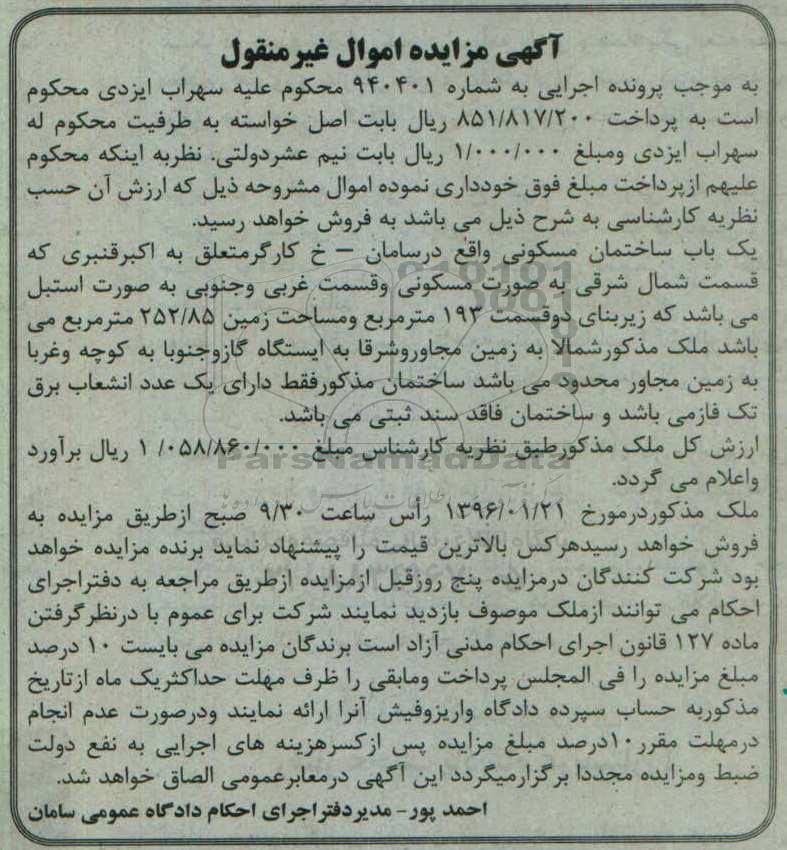 آگهی مزایده اموال غیرمنقول
به موجب پرونده اجرایی به شماره ۹۴۰۴۰۱ محکوم علیه سهراب ایزدی محکوم
است به پرداخت ۸۵۱/۸۱۷/۲۰۰ ریال بابت اصل خواسته به طرفیت محکوم له
سهراب ایزدی ومبلغ ۱/۰۰۰/۰۰۰ ریال بابت نیم عشردولتی. نظربه اینکه محکوم
علیهم ازپرداخت مبلغ فوق خودداری نموده اموال مشروحه ذیل که ارزش آن حسب
نظریه کارشناسی به شرح ذیل می باشد به فروش خواهد رسید.
یک باب ساختمان مسکونی واقع درسامان – خ کارگرمتعلق به اکبرقنبری که
قسمت شمال شرقی به صورت مسکونی وقسمت غربی وجنوبی به صورت استبل
می باشد که زیربنای دوقسمت ۱۹۳ مترمربع ومساحت زمین ۲۵۲/۸۵ مترمربع می
باشد ملک مذکورشمالا به زمین مجاوروشرقا به ایستگاه گازوجنوبا به کوچه وغربا
به زمین مجاور محدود می باشد ساختمان مذکورفقط دارای یک عدد انشعاب برق
تک فازمی باشد و ساختمان فاقد سند ثبتی می باشد.
ارزش کل ملک مذکورطبق نظریه کارشناس مبلغ ۱/۰۵۸/۸۶۰/۰۰۰ ریال برآورد
واعلام می گردد.
ParsNamadData
ملک مذکوردرمورخ ۱۳۹۶/۰۱/۲۱ رأس ساعت ۹/۳۰ صبح ازطریق مزایده به
فروش خواهد رسیدهرکس بالاترین قیمت را پیشنهاد نماید برنده مزایده خواهد
بود شرکت کنندگان درمزایده پنج روزقبل ازمزایده ازطریق مراجعه به دفتراجرای
احکام می توانند ازملک موصوف بازدید نمایند شرکت برای عموم با درنظرگرفتن
ماده ۱۲۷ قانون اجرای احکام مدنی آزاد است برندگان مزایده می بایست ۱۰ درصد
مبلغ مزایده را فی المجلس پرداخت ومابقی را ظرف مهلت حداکثریک ماه ازتاریخ
مذکوربه حساب سپرده دادگاه واریزوفیش آنرا ارائه نمایند ودرصورت عدم انجام
درمهلت مقرر۱۰درصد مبلغ مزایده پس ازکسرهزینه های اجرایی به نفع دولت
ضبط ومزایده مجددا برگزارمیگردد این آگهی درمعابرعمومی الصاق خواهد شد.
احمد پور- مدیردفتراجرای احکام دادگاه عمومی سامان